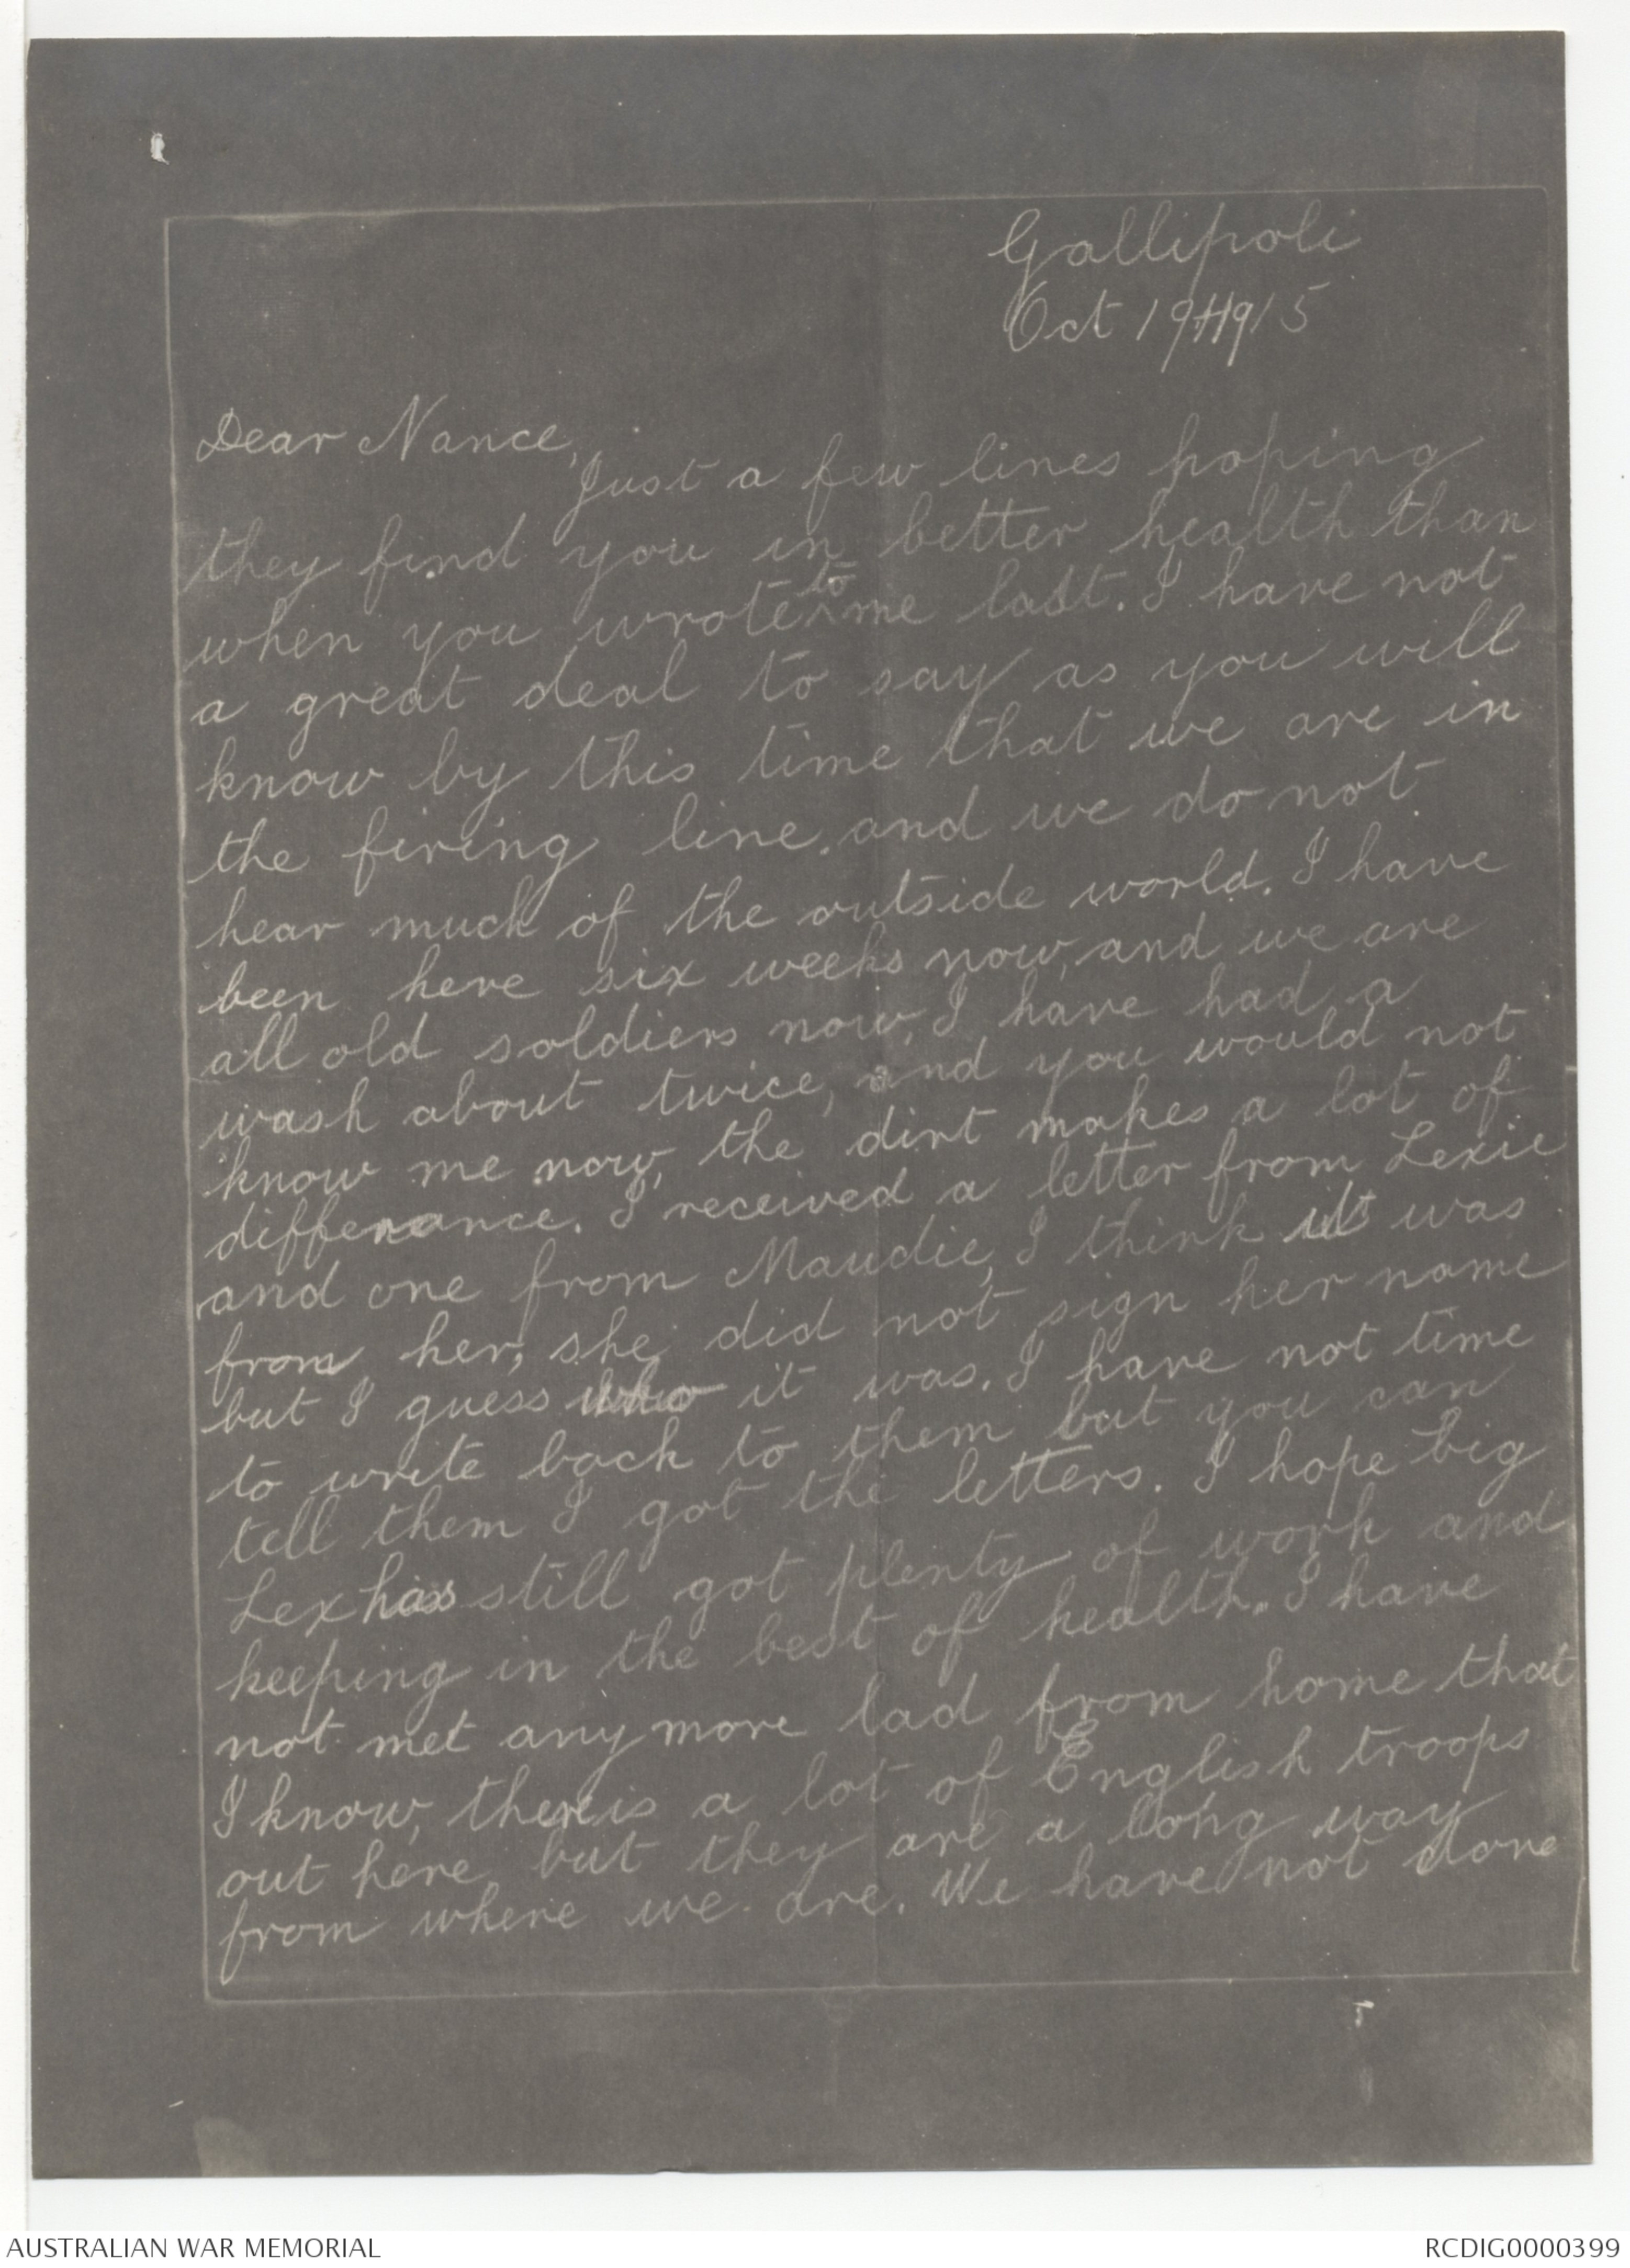 Gallipoli
Oct 19th 1915
Dear Nance,
Just a few lines hoping
they find you in better health than
when you wrote to me last. I have not
a great deal to say as you will
know by this time that we are in
the firing line, and we do not
hear much of the outside world. I have
been here six weeks now, and we are
all old soldiers now, I have had a
wash about twice, and you would not
know me now, the dirt makes a lot of
differance. I received a letter from Lexie
and one from Maudie, I think it was
from her, she did not sign her name
but I guess who it was. I have not time
to write back to them but you can
tell them I got the letters. I hope big
Lex has still got plenty of work and
keeping in the best of health. I have
not met any more lad from home that
I know, there is a lot of English troops
out here but they are a long way
from where we are. We have not done
AUSTRALIAN WAR MEMORIAL
RCDIG0000399